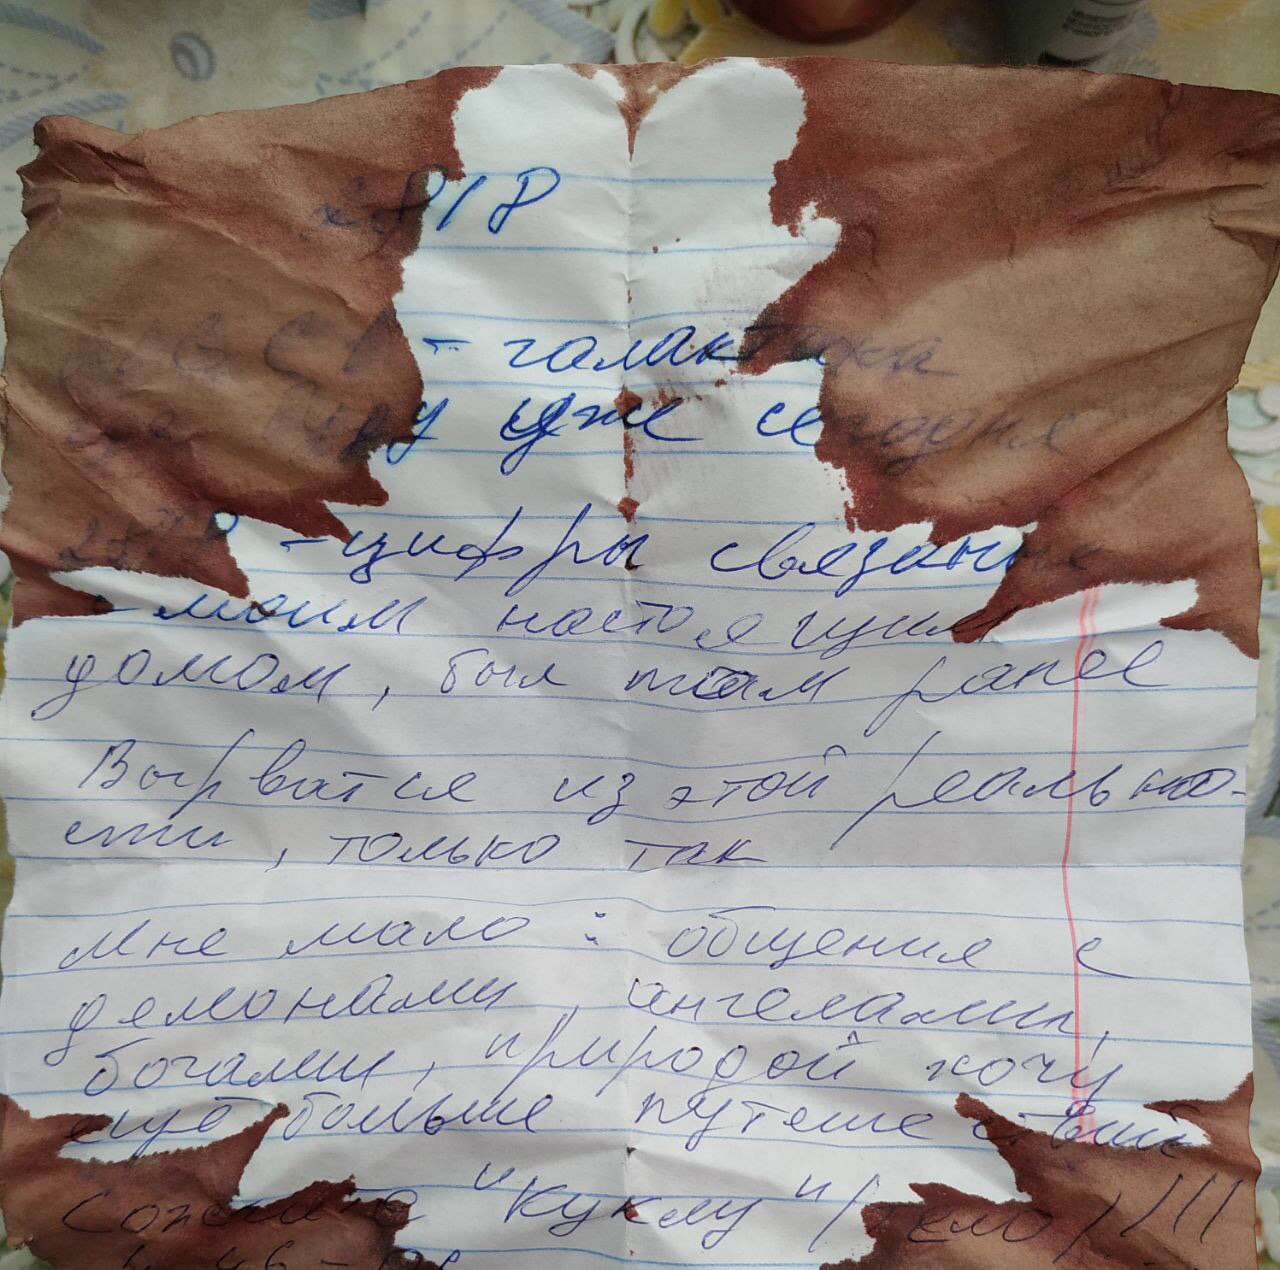 2818
- галактика
буду уже сегодня
- цифры связаны
моим настоящим
домом, был там ранее
Вырватся из этой реально-
сти, только так
Мне мало : общения с
демонами, ангелами,
богами, природой хочу
ещё больше путешествий
Сожгите "Куклу" (тело) !!!